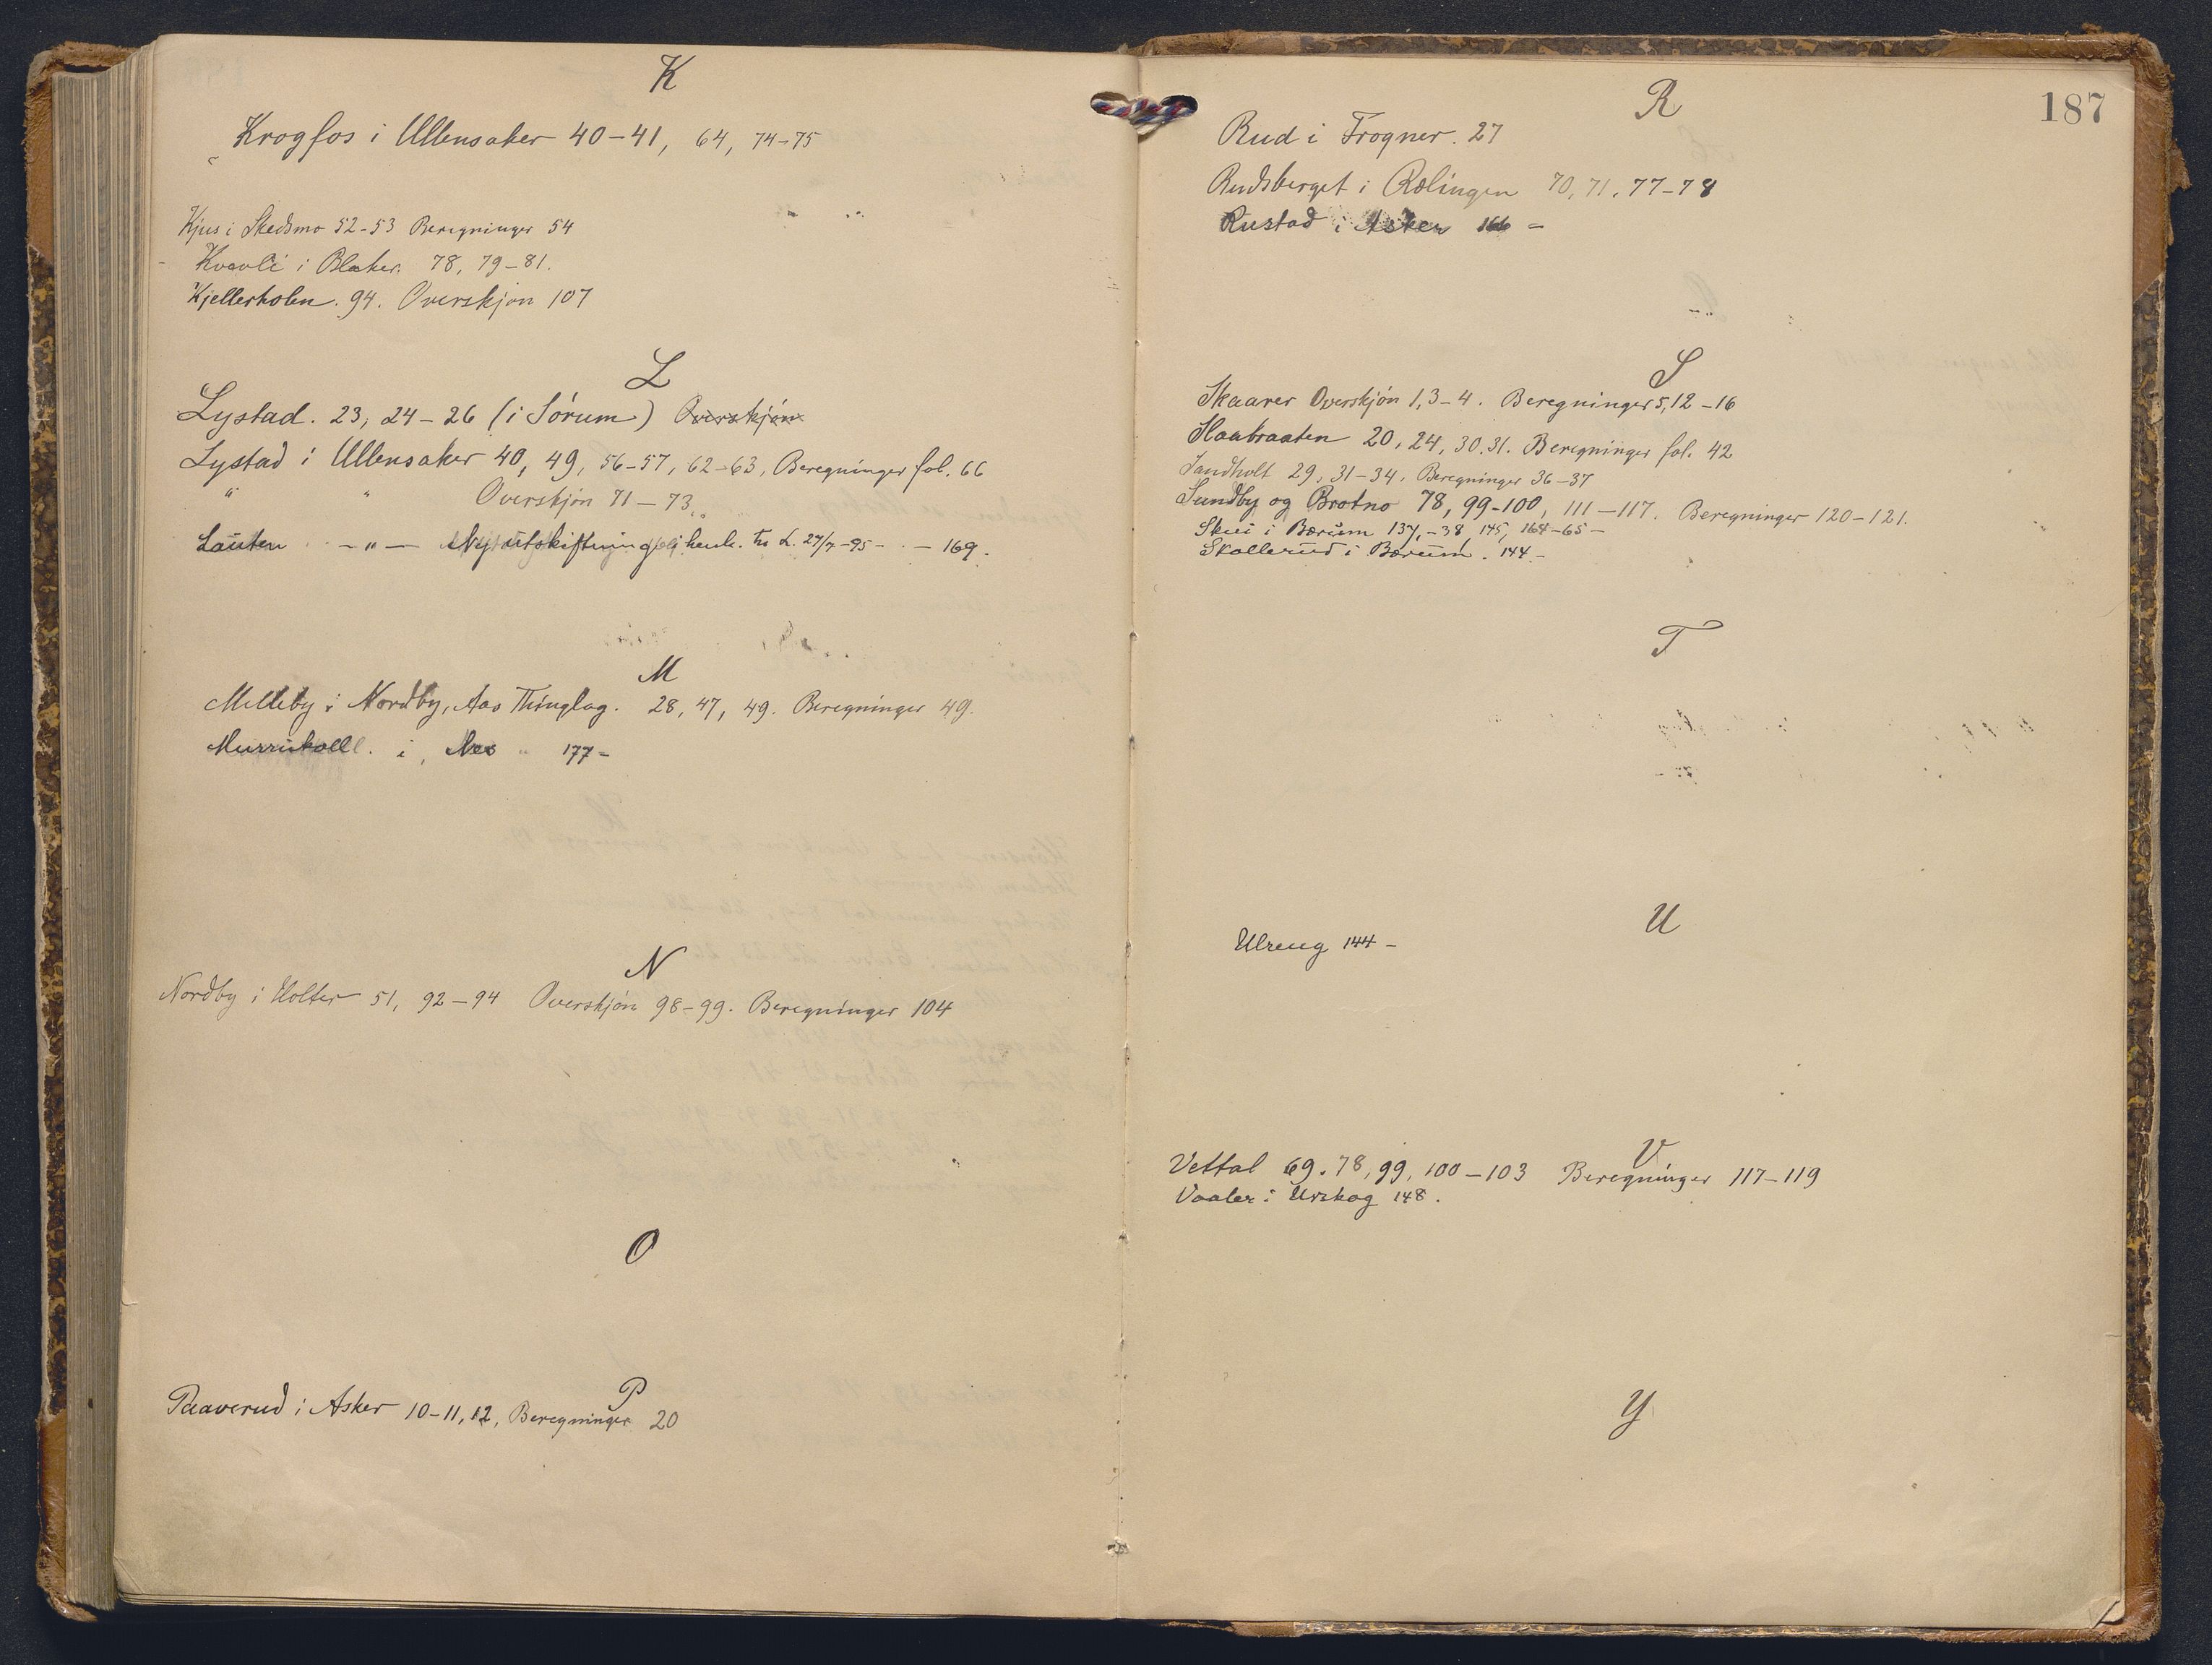 K
Krogfos i Ullensaker 40-41, 64, 74-75
Kjus i Skedsmo 52-53 Beregninger 54
Kvevli i Blaker. 78, 79-81.
Kjellerholen. 94. Overskjön 107
L
Lystad. 23, 24-26 (i Sórum) Overskjön
Lystad i Ullensaker 40, 49, 56-57, 62-63, Beregninger fol. 66
" " Overskjön 71-73
Lauten -"- Ny utskiftning L. 27/7-95 - - 169.
M
Melleby i Nordby, Aas Thinglag. 28, 47, 49. Beregninger 49.
i Nes " 177-
N
Nordby i Holter 51, 92-94 Overskjön 98-99. Beregninger 104
O
P
Paaverud i Asker 10-11, 12, Beregninger 20
187
R
Rud i Frogner. 27
Rudsberget i Rælingen 70, 71, 77-78
Rustad i Asker 166 -
S
Skaarer Overskjön 1, 3-4. Beregninger 5, 12-16
Slaabraaten 20, 24, 30. 31. Beregninger fol. 42
Sandholt 29, 31-34, Beregninger 36-37
Sundby og Brotno 78, 99-100, 111-117. Beregninger 120-121.
Skui i Bærum 137, -38, 145, 164-65-
Skallerud i Bærum. 144-
T
U
Ulreng 144-
V
Vettal 69. 78, 99, 100-103 Beregninger 117-119
Vaaler i Urskog 148.
Y